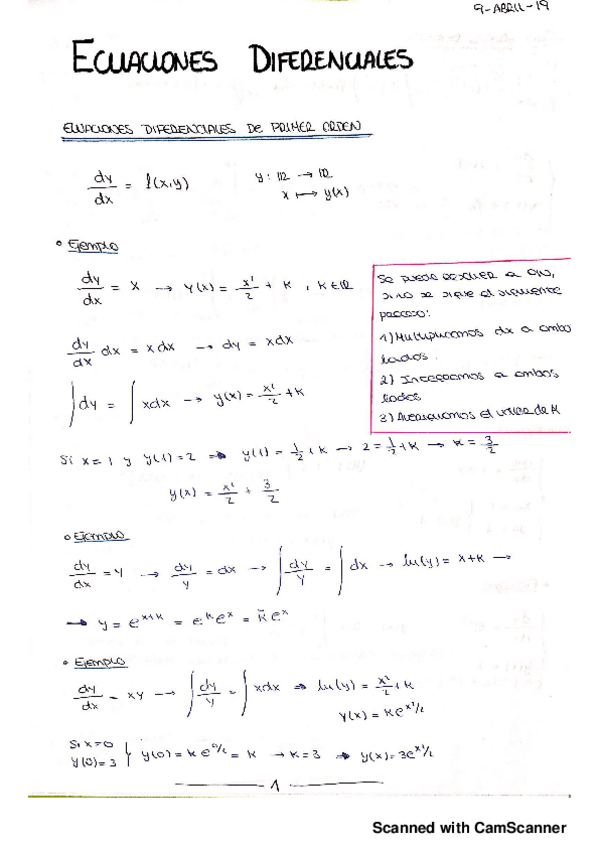 9-ABRIL-19
ECUACIONES DIFERENCIALES
ECUACIONES DIFERENCIALES DE PRIMER ORDEN
dy/dx = f(x,y)    y: ℝ → ℝ
x ↦ y(x)
• Ejemplo
dy/dx = x → y(x) = x²/2 + K, K∈ℝ
Se puede resolver a ojo,
si no se sigue el siguiente
proceso:
1) Multiplicamos dx a ambo
lados.
2) Integramos a ambos
lados
3) Averiguamos el valor de K
dy/dx dx = x dx → dy = x dx
∫dy = ∫xdx → y(x) = x²/2 + K
Si x=1 y y(1)=2 ⇒ y(1) = 1/2 + K → 2 = 1/2 + K → K = 3/2
y(x) = x²/2 + 3/2
• Ejemplo
dy/dx = y → dy/y = dx → ∫dy/y = ∫dx → ln(y) = x+K →
→ y = e^(x+K) = e^K e^x = K̄ e^x
• Ejemplo
dy/dx = xy → ∫dy/y = ∫xdx ⇒ ln(y) = x²/2 + K
y(x) = K e^(x²/2)
Si x=0
y(0)=3 } y(0) = K e^(0/2) = K → K=3 ⇒ y(x) = 3e^(x²/2)
1
Scanned with CamScanner